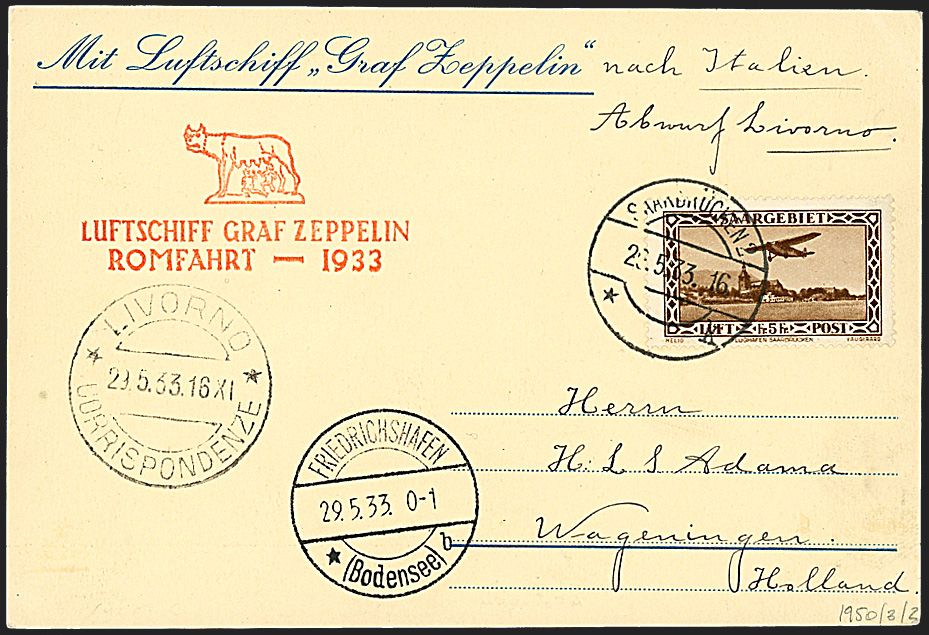 Mit Luftschiff „Graf Zeppelin“ nach Italien.
Abwurf Livorno.
LUFTSCHIFF GRAF ZEPPELIN
ROMFAHRT — 1933
SAARBRÜCKEN 2
28.5.33. 16
* A
SAARGEBIET
LUFT Fr. 5 Fr. POST
HELIO FLUGHAFEN SAARBRÜCKEN VAUGIRARD
LIVORNO
29.5.33.16 XI
* CORRISPONDENZE *
FRIEDRICHSHAFEN
29.5.33. 0-1
* (Bodensee) b
Herrn
H. L. S Adama
Wageningen.
Holland.
1950/3/2